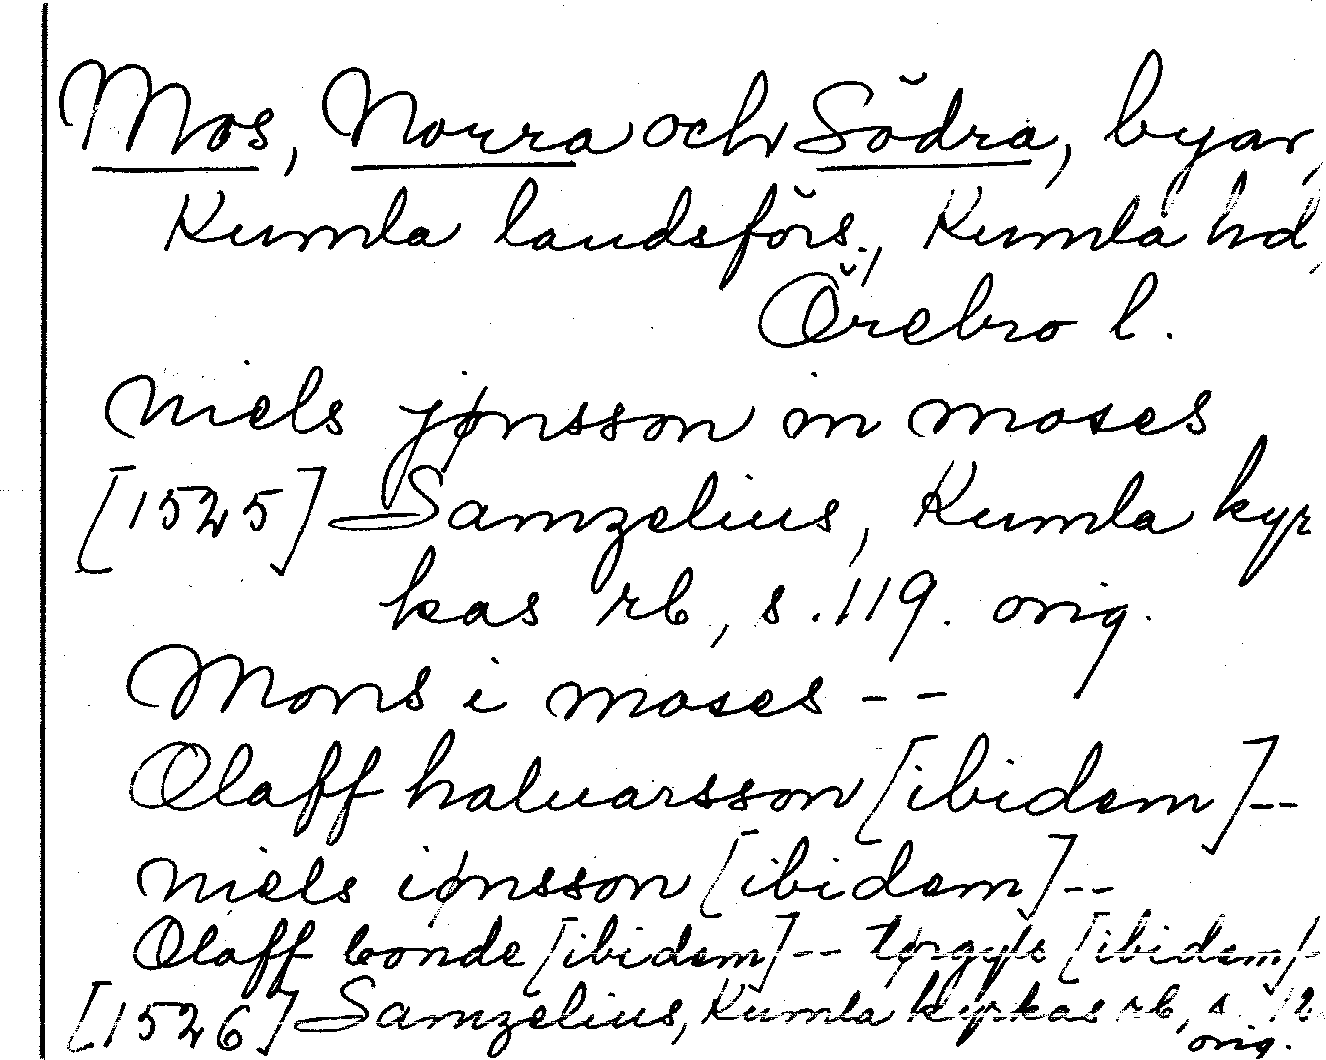 Mos, Norra och Södra, byar,
Kumla landsförs., Kumla hd,
Örebro l.
niels jønsson in moses
[1525] Samzelius, Kumla kyr
kas rb, s. 119. orig.
Mons i moses --
Olaff haluarsson [ibidem] --
niels iønsson [ibidem] --
Olaff bonde [ibidem] -- tørgyls [ibidem] -
[1526] Samzelius, Kumla kyrkas rb, s. 12
orig.